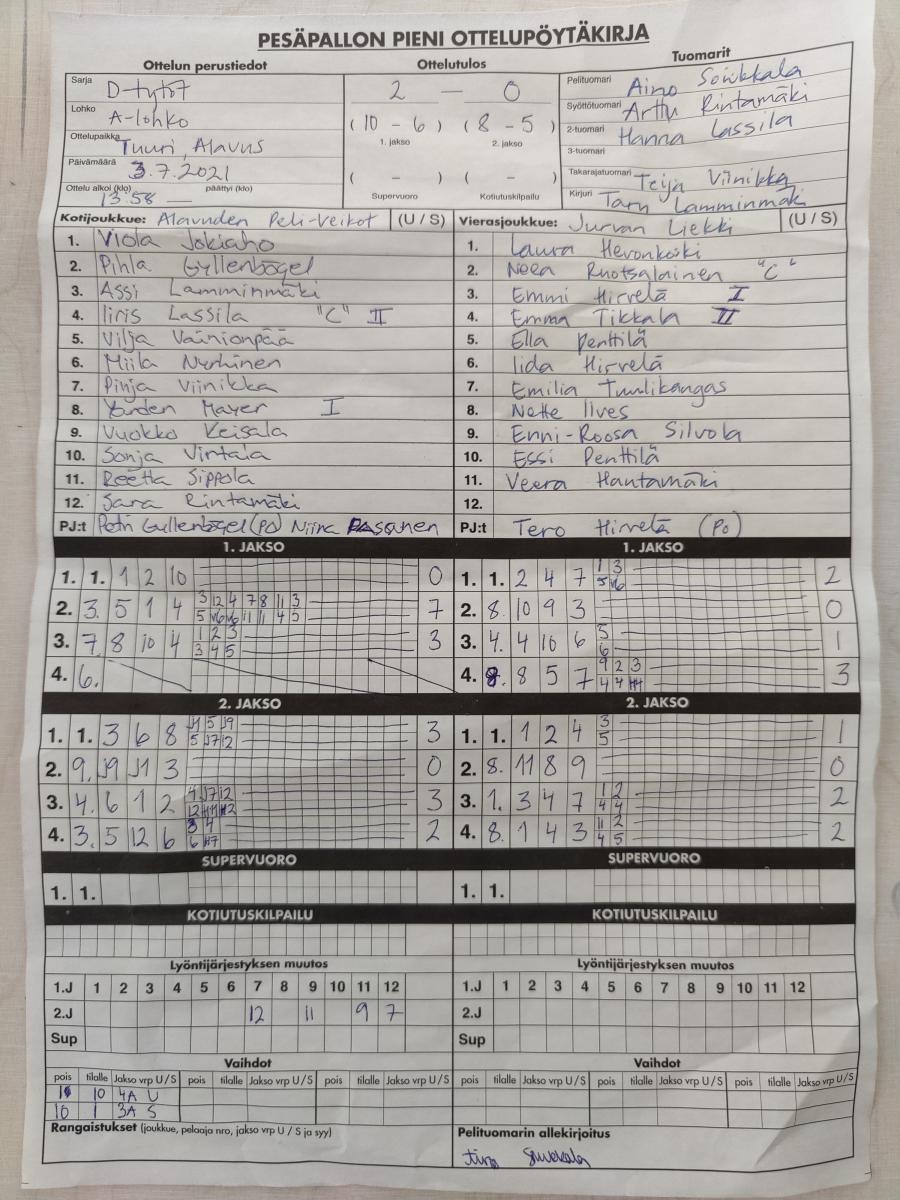 PESÄPALLON PIENI OTTELUPÖYTÄKIRJA
Ottelun perustiedot
Sarja D-tytöt
Lohko A-lohko
Ottelupaikka Tuuri, Alavus
Päivämäärä 3.7.2021
Ottelu alkoi (klo) 13:58 — päättyi (klo)
Ottelutulos
2 — 0
(10 - 6) (8 - 5)
1. jakso 2. jakso
( - ) ( - )
Supervuoro Kotiutuskilpailu
Tuomarit
Pelituomari Aino
Syöttötuomari Arttu Rintamäki
2-tuomari Hanna Lassila
3-tuomari
Takarajatuomari Teija Viinikka
Kirjuri Taru Lamminmäki
Kotijoukkue: Alavuden Peli-Veikot (U / S)
1. Viola Jokiaho
2. Pihla Gyllenbögel
3. Assi Lamminmäki
4. Iiris Lassila "C" II
5. Vilja Väinionpää
6. Miila Nyrhinen
7. Pinja Viinikka
8. Mayer I
9. Vuokko Keisala
10. Sonja Virtala
11. Reetta Sippola
12. Sara Rintamäki
PJ:t Petri Gyllenbögel (PO) Niina Pasanen
Vierasjoukkue: Jurvan Liekki (U / S)
1. Laura Hevonkoski
2. Neea Ruotsalainen "C"
3. Emmi Hirvelä I
4. Emma Tikkala II
5. Ella Penttilä
6. Iida Hirvelä
7. Emilia Tuulikangas
8. Nette Ilves
9. Enni-Roosa Silvola
10. Essi Penttilä
11. Veera Hantamäki
12.
PJ:t Tero Hirvelä (Po)
1. JAKSO
1. 1. 1 2 10 0
2. 3. 5 1 4 3 12 4 7 8 11 3 7
5 11 11 4 5
3. 7. 8 10 4 1 2 3 3
3 4 5
4. 6.
1. JAKSO
1. 1. 2 4 7 1 3 2
5 6
2. 8. 10 9 3 0
3. 4. 4 10 6 5 1
6
4. 8. 8 5 7 9 2 3 3
4 4
2. JAKSO
1. 1. 3 6 8 J1 5 J9 3
5 J7 12
2. 9. J9 J1 3 0
3. 4. 6 1 2 4 J7 12 3
12
4. 3. 5 12 6 3 4 2
6
2. JAKSO
1. 1. 1 2 4 3 1
5
2. 8. 11 8 9 0
3. 1. 3 4 7 1 2 2
4 4
4. 8. 1 4 3 11 2 2
4 5
SUPERVUORO
1. 1.
SUPERVUORO
1. 1.
KOTIUTUSKILPAILU
KOTIUTUSKILPAILU
Lyöntijärjestyksen muutos
1.J 1 2 3 4 5 6 7 8 9 10 11 12
2.J 12 11 9 7
Sup
Lyöntijärjestyksen muutos
1.J 1 2 3 4 5 6 7 8 9 10 11 12
2.J
Sup
Vaihdot
pois tilalle Jakso vrp U / S pois tilalle Jakso vrp U / S pois tilalle Jakso vrp U / S
10 4A U
10 1 3A S
Vaihdot
pois tilalle Jakso vrp U / S pois tilalle Jakso vrp U / S pois tilalle Jakso vrp U / S
Rangaistukset (joukkue, pelaaja nro, jakso vrp U / S ja syy)
Pelituomarin allekirjoitus